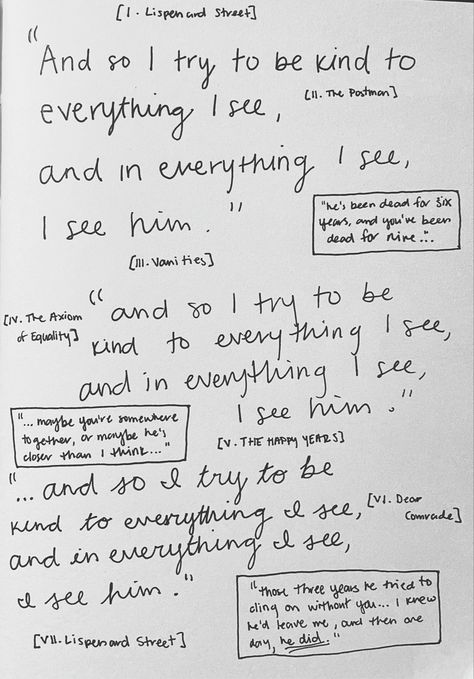 [I. Lispenard Street]
"And so I try to be kind to
everything I see,
[II. The Postman]
and in everything I see,
I see him."
"he's been dead for six
years, and you've been
dead for nine..."
[III. Vanities]
[IV. The Axiom
of Equality]
"and so I try to be
kind to everything I see,
and in everything I see,
I see him."
"... maybe you're somewhere
together, or maybe he's
closer than I think..."
[V. THE HAPPY YEARS]
"...and so I try to be
kind to everything I see,
[VI. Dear
Comrade]
and in everything I see,
I see him."
"those three years he tried to
cling on without you... I knew
he'd leave me, and then one
day, he did."
[VII. Lispenard Street]